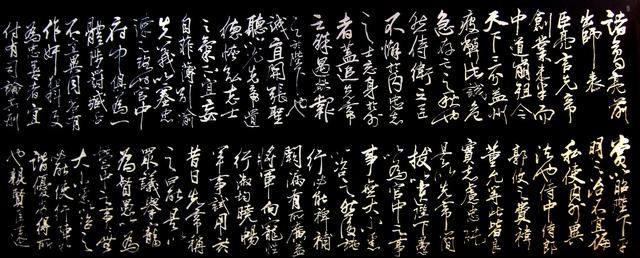 諸葛亮前
出師表
臣亮言先帝
創業未半而
中道崩殂今
天下三分益州
疲弊此誠危
急存亡之秋也
然侍衛之臣
不懈于內忠志
之士忘身於外
者蓋追先帝
之殊遇欲報
之於陛下也
誠宜開張聖
聽以光先帝遺
德恢弘志士
之氣不宜妄
自菲薄引喻
失義以塞忠
諫之路也宮中
府中俱為一
體陟罰臧否
不宜異同若有
作奸犯科及
為忠善者宜
付有司論其刑
賞以昭陛下平
明之治不宜偏
私使內外異
法也侍中侍郎
郭攸之費禕
董允等此皆良
實志慮忠純
是以先帝簡
拔以遺陛下愚
以為宮中之事
事無大小悉
以咨之然後施
行必能裨補
闕漏有所廣益
將軍向寵性
行淑均曉暢
軍事試用於
昔日先帝稱
之曰能是以
眾議舉寵
為督愚以為
營中之事事無
大小悉以咨之
必能使行陣和
諧優劣得所
也親賢臣遠